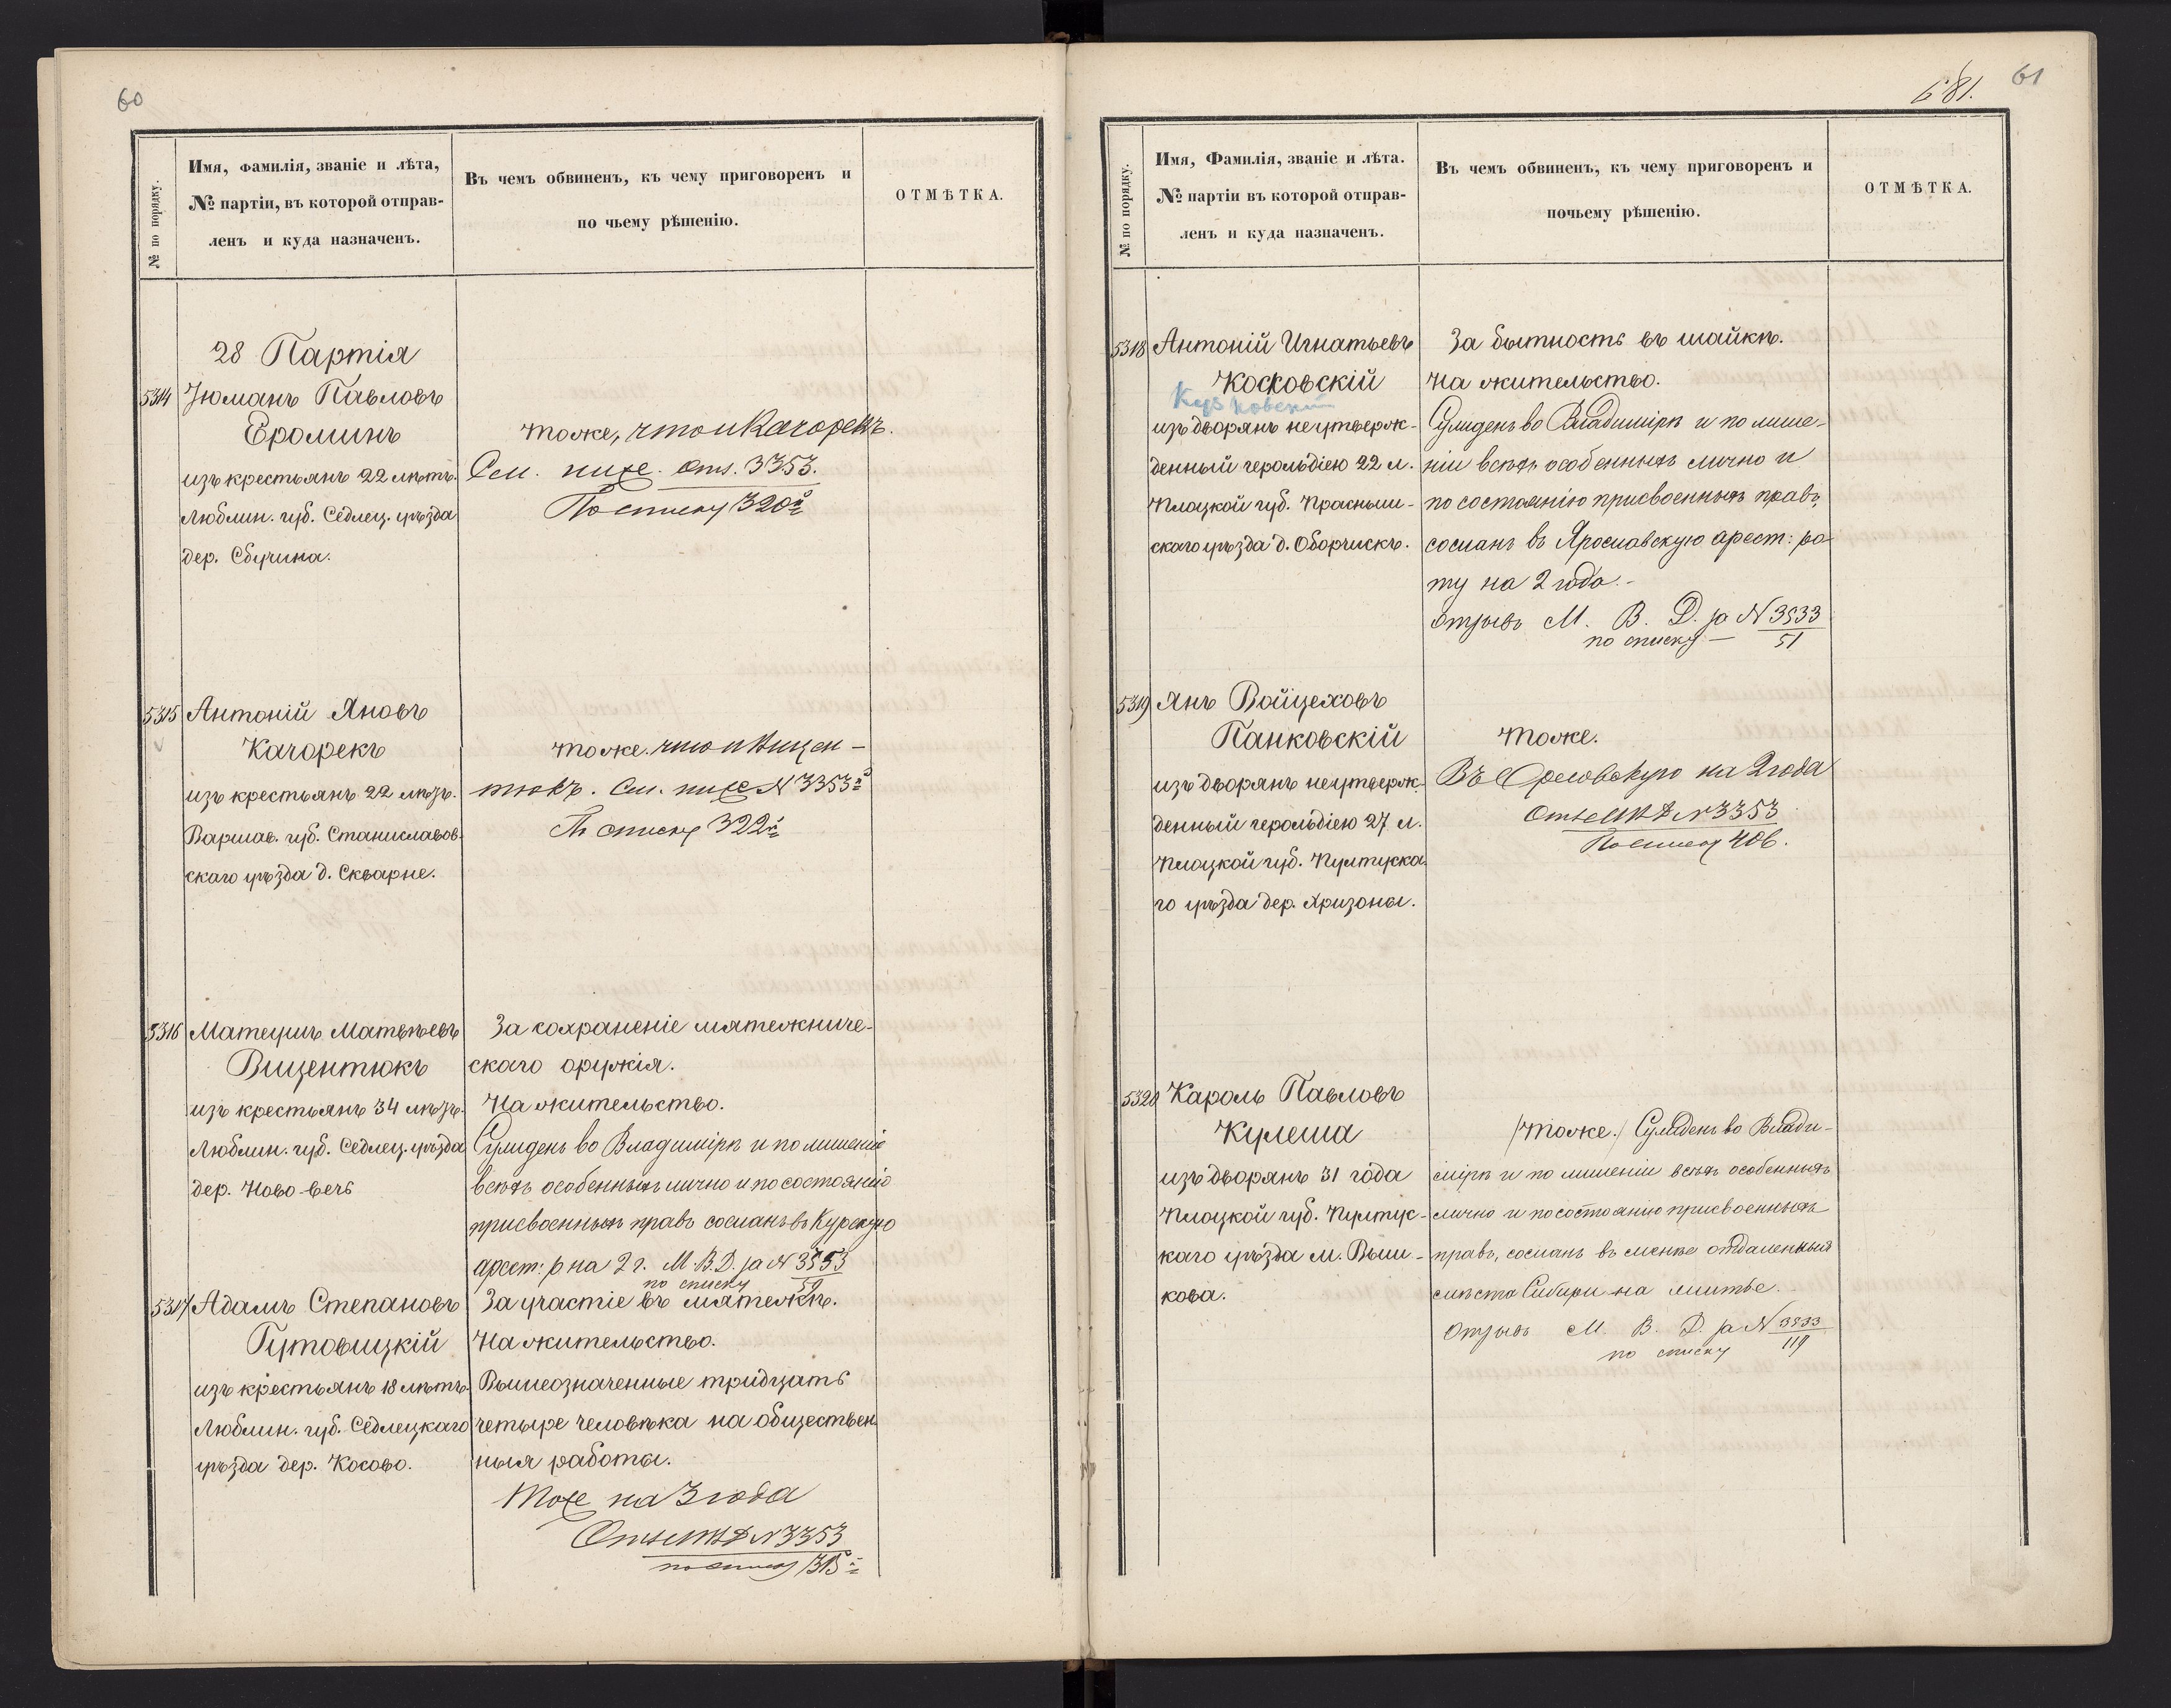 60
№ по порядку.
Имя, фамилія, званіе и лѣта,
№ партіи, въ которой отправ-
ленъ и куда назначенъ.
Въ чемъ обвиненъ, къ чему приговоренъ и
по чьему рѣшенію.
ОТМѢТКА.
28 Партія
5314 Юманъ Павловъ
Ероминъ
изъ крестьянъ 22 лѣтъ.
Люблин. губ. Седлец. уѣзда
дер. Сбучина.
Тоже, что и Качорекъ.
См. ниже. Отз. 3353.
По списку 320й
5315 Антоній Яновъ
Качорекъ
изъ крестьянъ 22 лѣтъ.
Варшав. губ. Станиславов-
скаго уѣзда д. Скварне.
Тоже. что и Вицен-
тюкъ. См. ниже N 3353й
По списку 322й
5316 Матеушъ Матвѣевъ
Вицентюкъ
изъ крестьянъ 34 лѣтъ.
Люблин. губ. Седлец. уѣзда
дер. Ново-вечь
За сохраненіе мятежниче-
скаго оружія.
На жительство.
Сужденъ во Владимірѣ и по лишеніи
всѣхъ особенныхъ лично и по состоянію
присвоенныхъ правъ сосланъ въ Курскую
арест: р на 2 г. М.В.Д. за N 3353
по списку 59
5317 Адамъ Степановъ
Гутовицкій
изъ крестьянъ 18 лѣтъ.
Люблин. губ. Седлецкаго
уѣзда дер. Косово.
За участіе въ мятежѣ.
На жительство.
Вышеозначенные тридцать
четыре человѣка на обществен-
ныя работы.
Тоже на 3 года
Отз МВД N 3353
по списку 1315й
681.
61
№ по порядку.
Имя, Фамилія, званіе и лѣта.
№ партіи въ которой отправ-
ленъ и куда назначенъ.
Въ чемъ обвиненъ, къ чему приговоренъ и
почьему рѣшенію.
ОТМѢТКА.
5318 Антоній Игнатьевъ
Косковскій
Кусковскій
изъ дворянъ неутверж-
денный герольдіею 22 л.
Плоцкой губ. Прасныш-
скаго уѣзда д. Оборчискъ.
За бытность въ шайкѣ.
На жительство.
Сужденъ во Владимірѣ и по лише-
ніи всѣхъ особенныхъ лично и
по состоянію присвоенныхъ правъ,
сосланъ въ Ярославскую арест: ро-
ту на 2 года.-
Отзывъ М. В. Д. за N 3533
по списку — 51
5319 Янъ Войцеховъ
Панковскій
изъ дворянъ неутверж-
денный герольдіею 27 л.
Плоцкой губ. Пултуска-
го уѣзда дер. Хризоны.
Тоже.
Въ Орловскую на 2 года
Отз МВД N 3353
По списку 406.
5320 Кароль Павловъ
Кулеша
изъ дворянъ 31 года
Плоцкой губ. Пултус-
каго уѣзда м. Выш-
кова.
/Тоже./ Сужденъ во Влади-
мірѣ и по лишеніи всѣхъ особенныхъ
лично и по состоянію присвоенныхъ
правъ, сосланъ въ менѣе отдаленныя
мѣста Сибири на житье.
Отзывъ М. В. Д. за N 3533
по списку 119